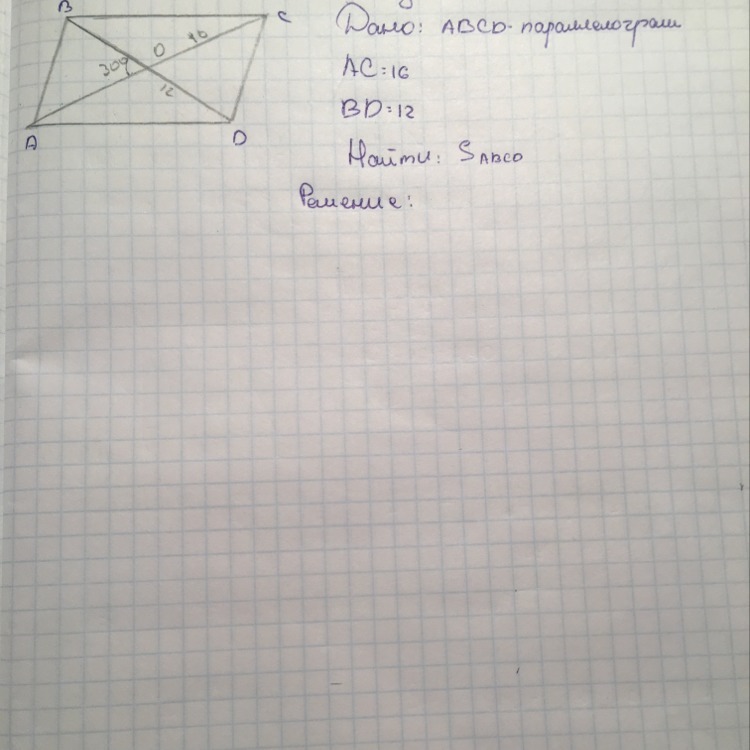 B
C
O
16
30°
12
A
D
Дано: ABCD - параллелограм
AC=16
BD=12
Найти: S ABCD
Решение: